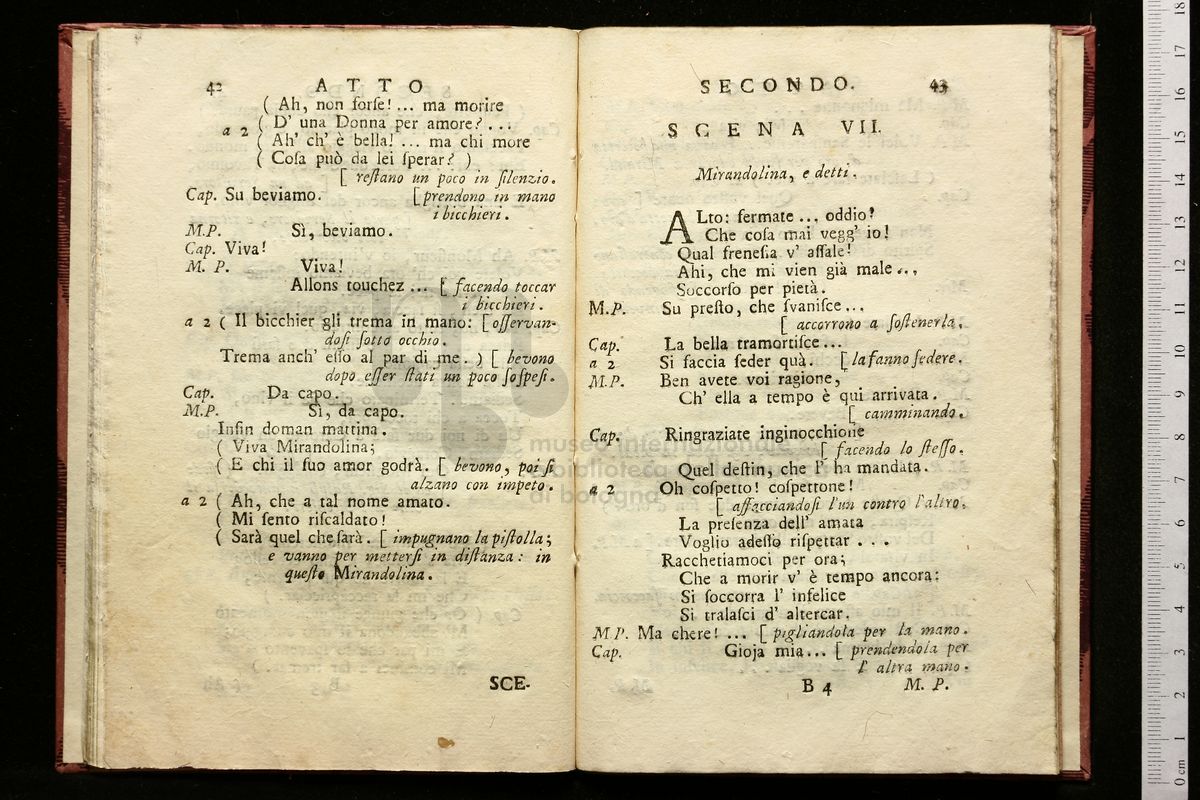 42 ATTO
( Ah, non forſe! ... ma morire
a 2 ( D' una Donna per amore? ...
( Ah' ch' è bella! ... ma chi more
( Coſa può da lei ſperar? )
[ reſtano un poco in ſilenzio.
Cap. Su beviamo. [prendono in mano
i bicchieri.
M.P. Sì, beviamo.
Cap. Viva!
M. P. Viva!
Allons touchez ... [ facendo toccar
i bicchieri.
a 2 ( Il bicchier gli trema in mano: [oſſervan-
doſi ſotto occhio.
Trema anch' eſſo al par di me. ) [ bevono
dopo eſſer ſtati un poco ſoſpeſi.
Cap. Da capo.
M.P. Sì, da capo.
Inſin doman mattina.
( Viva Mirandolina;
( E chi il ſuo amor godrà. [ bevono, poi ſi
alzano con impeto.
a 2 ( Ah, che a tal nome amato.
( Mi ſento riſcaldato!
( Sarà quel che ſarà. [ impugnano la piſtolla;
e vanno per metterſi in diſtanza: in
queſto Mirandolina.
SCE-
SECONDO. 43
SCENA VII.
Mirandolina, e detti.
ALto: fermate ... oddio!
Che coſa mai vegg' io!
Qual freneſia v' aſſale!
Ahi, che mi vien già male...
Soccorſo per pietà.
M.P. Su preſto, che ſvaniſce...
[ accorrono a ſoſtenerla.
Cap. La bella tramortiſce...
a 2 Si faccia ſeder quà. [la fanno ſedere.
M.P. Ben avete voi ragione,
Ch' ella a tempo è qui arrivata.
[ camminando.
Cap. Ringraziate inginocchione
[ facendo lo ſteſſo.
Quel deſtin, che l' ha mandata.
a 2 Oh coſpetto! coſpettone!
[ affacciandoſi l'un contro l'altro.
La preſenza dell' amata
Voglio adeſſo riſpettar ...
Racchetiamoci per ora;
Che a morir v' è tempo ancora:
Si ſoccorra l' infelice
Si tralaſci d' altercar.
M.P. Ma chere! ... [ pigliandola per la mano.
Cap. Gioja mia... [ prendendola per
l' altra mano.
B 4 M. P.
museo internazionale
e biblioteca della musica
di bologna
0 cm 1 2 3 4 5 6 7 8 9 10 11 12 13 14 15 16 17 18